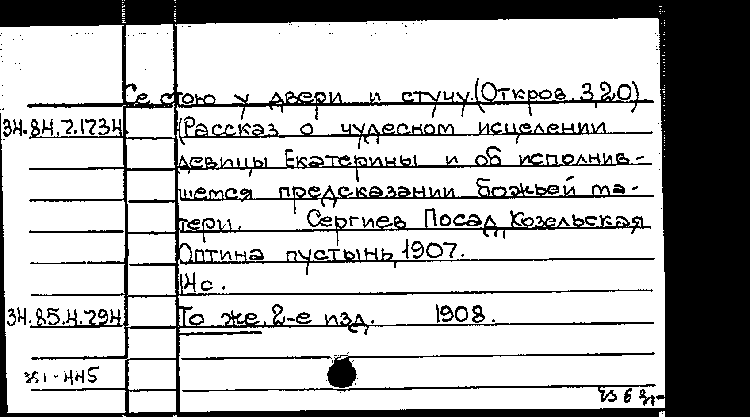 Се стою у двери и стучу.(Откров. 3,20)
34.84.7.1234 (Рассказ о чудесном исцелении
девицы Екатерины и об исполнив-
шемся предсказании божьей ма-
тери. Сергиев Посад, Козельская
Оптина пустынь, 1907.
14с.
34.85.4.294 То же, 2-е изд. 1908.
351-445